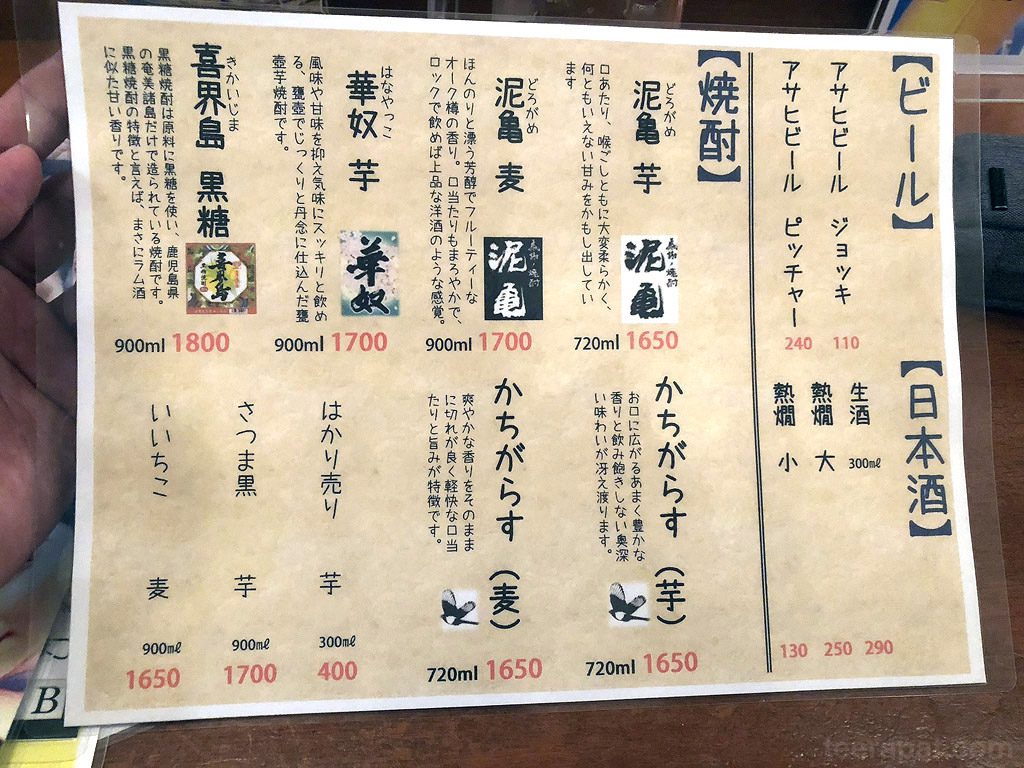 【ビール】
アサヒビール ジョッキ 110
アサヒビール ピッチャー 240
【日本酒】
生酒 300㎖ 290
熱燗 大 250
熱燗 小 130
【焼酎】
どろがめ
泥亀 芋
口あたり、喉ごしともに大変柔らかく、
何ともいえない甘みをかもし出してい
ます
泥亀
720ml 1650
どろがめ
泥亀 麦
ほんのりと漂う芳醇でフルーティーな
オーク樽の香り。口当たりもまろやかで、
ロックで飲めば上品な洋酒のような感覚。
泥亀
900ml 1700
はなやっこ
華奴 芋
風味や甘味を抑え気味にスッキリと飲め
る、甕壺でじっくりと丹念に仕込んだ甕
壺芋焼酎です。
華奴
900ml 1700
きかいじま
喜界島 黒糖
黒糖焼酎は原料に黒糖を使い、鹿児島県
の奄美諸島だけで造られている焼酎です。
黒糖焼酎の特徴と言えば、まさにラム酒
に似た甘い香りです。
喜界島
900ml 1800
かちがらす (芋)
お口に広がるあまく豊かな
香りと飲み飽きしない奥深
い味わいが冴え渡ります。
720ml 1650
かちがらす (麦)
爽やかな香りをそのまま
に切れが良く軽快な口当
たりと旨みが特徴です。
720ml 1650
はかり売り 芋 300㎖ 400
さつま黒 芋 900㎖ 1700
いいちこ 麦 900㎖ 1650
B
teerapat.com